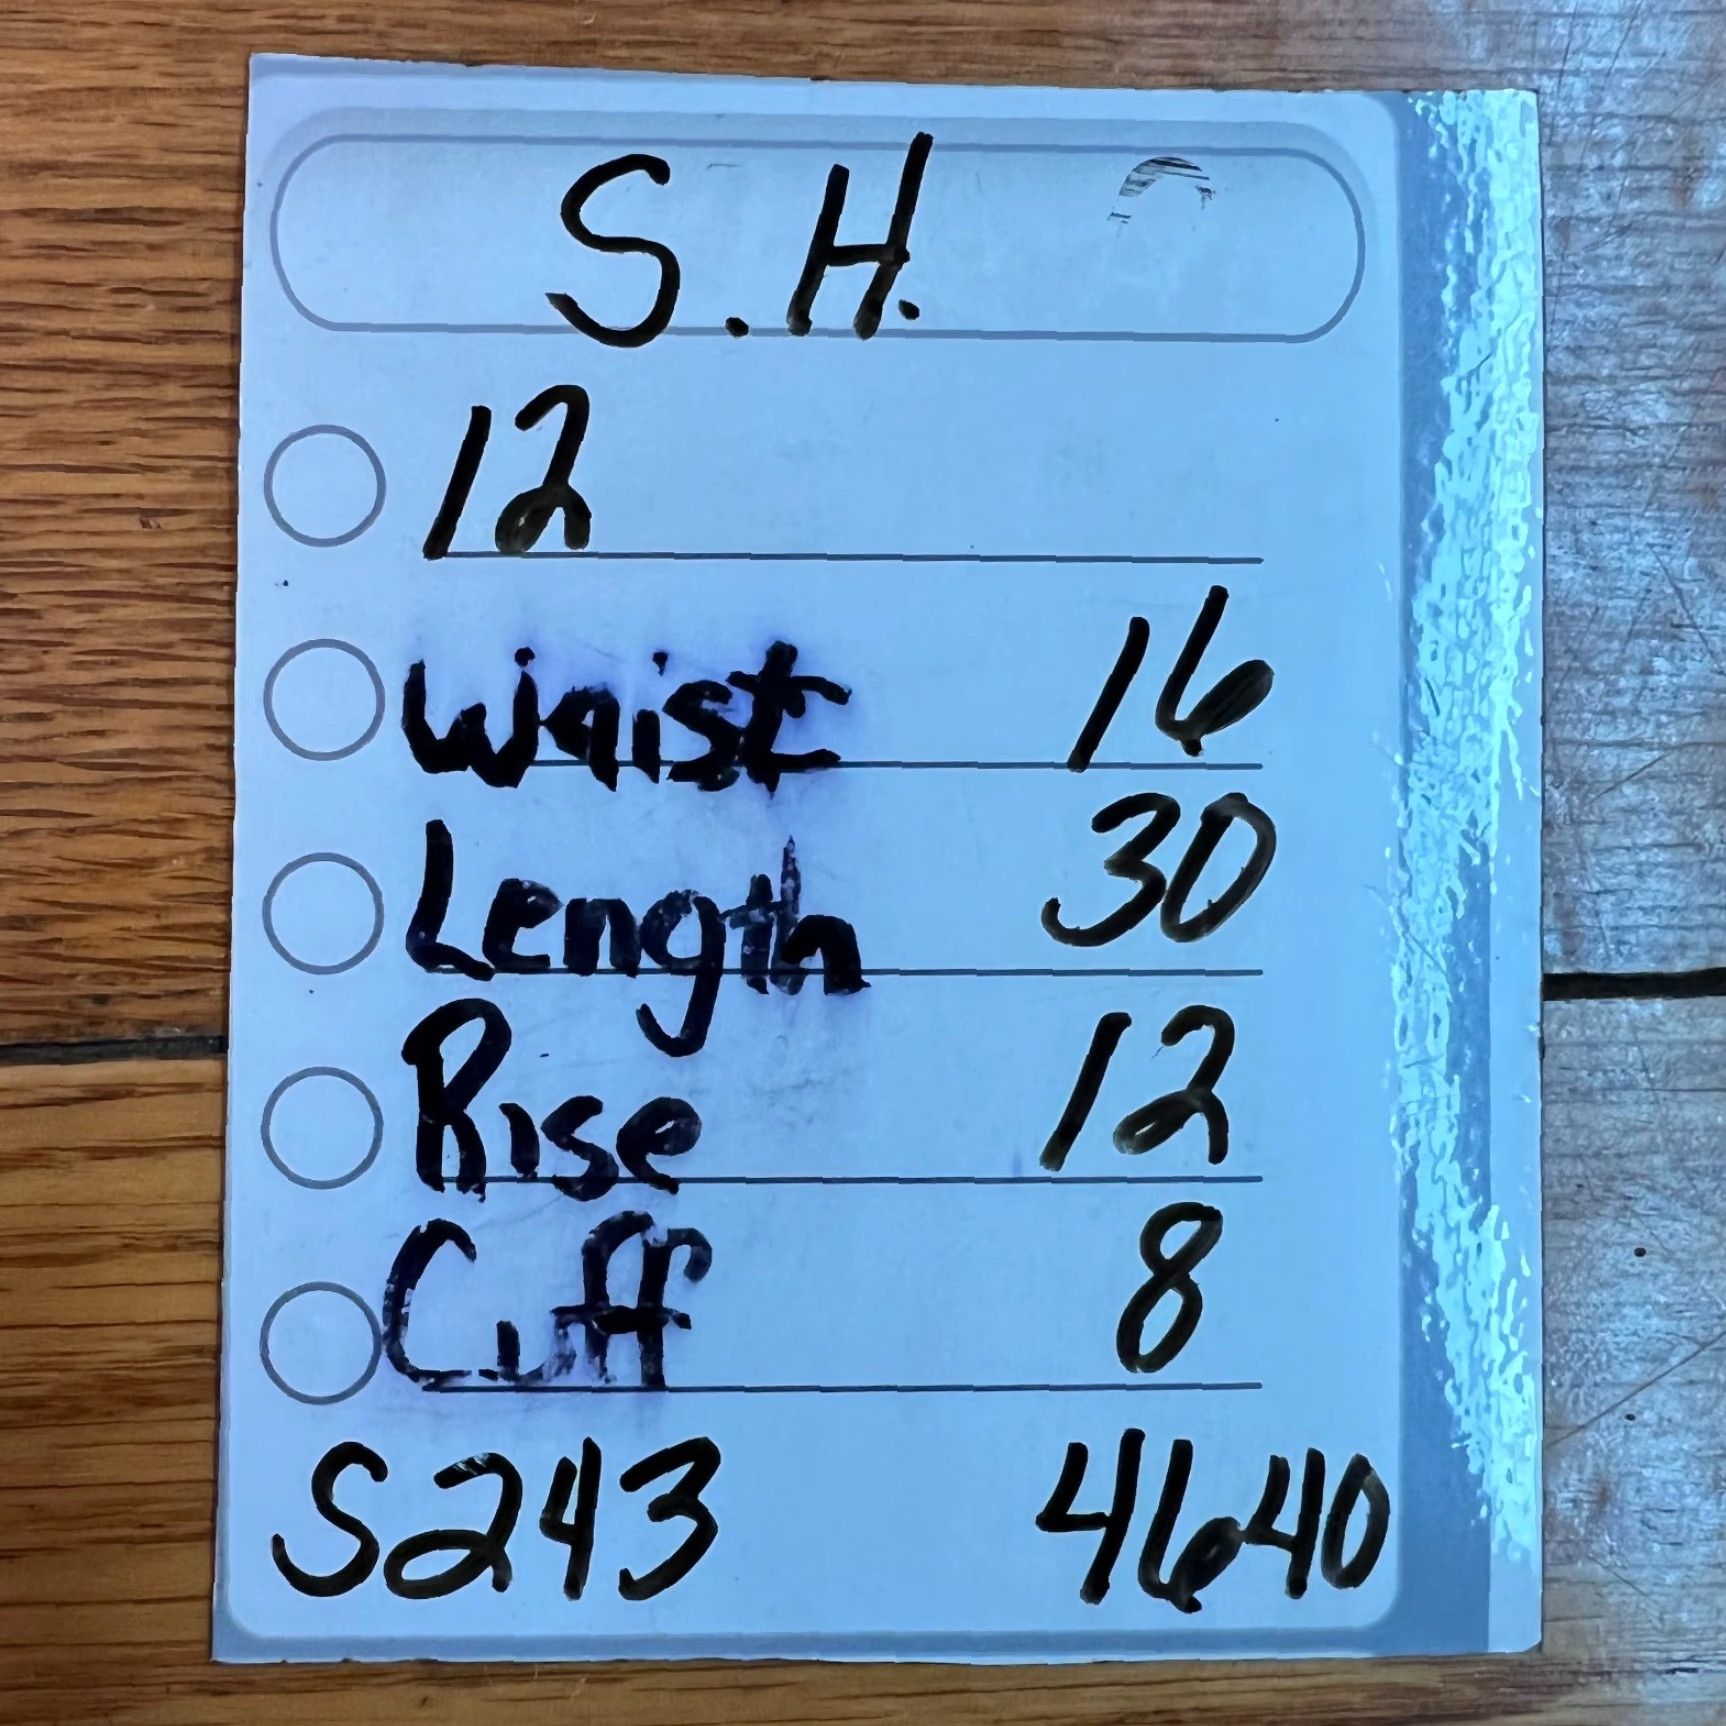 S.H.
12
Waist 16
Length 30
Rise 12
Cuff 8
S243 4640